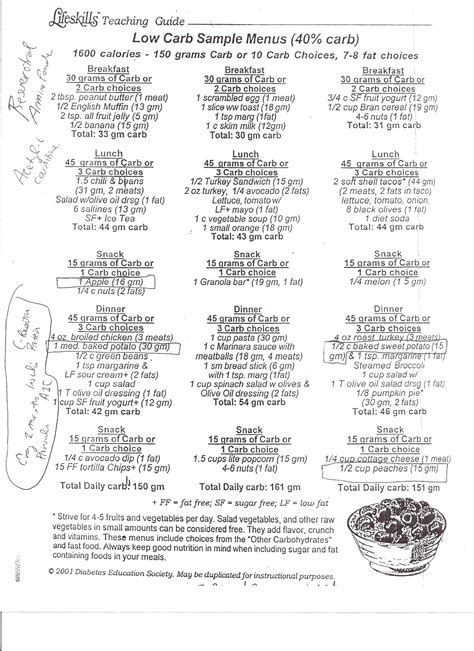 Lifeskills Teaching Guide
Low Carb Sample Menus (40% carb)
1600 calories - 150 grams Carb or 10 Carb Choices, 7-8 fat choices
Breakfast
30 grams of Carb or
2 Carb choices
2 tbsp. peanut butter (1 meat)
1/2 English Muffin (13 gm)
2 tsp. all fruit jelly (5 gm)
1/2 banana (15 gm)
Total: 33 gm carb
Breakfast
30 grams of Carb or
2 Carb choices
1 scrambled egg (1 meat)
1 slice ww toast (18 gm)
1 tsp marg (1fat)
1 c skim milk (12gm)
Total: 30 gm carb
Breakfast
30 grams of Carb or
2 Carb choices
3/4 c SF fruit yogurt (12 gm)
1/2 cup Bran cereal (19 gm)
4-6 nuts (1 fat)
Total: 31 gm carb
Lunch
45 grams of Carb or
3 Carb choices
1.5 chili & beans
(31 gm, 2 meats)
Salad w/olive oil drsg (1 fat)
6 saltines (13 gm)
SF+ Ice Tea
Total: 44 gm carb
Lunch
45 grams of Carb or
3 Carb choices
1/2 Turkey Sandwich (15 gm)
2 oz turkey, 1/4 avocado (2 fats)
Lettuce, tomato w/
LF+ mayo (1 fat)
1 c vegetable soup (10 gm)
1 small orange (18 gm)
Total: 43 gm carb
Lunch
45 grams of Carb or
3 Carb choices
2 soft shell tacos* (44 gm)
(2 meats, 2 fats in taco)
lettuce, tomato, onion,
8 black olives (1 fat)
1 diet soda
Total: 44 gm carb
Snack
15 grams of Carb or
1 Carb choice
1 Apple (16 gm)
1/4 c nuts (2 fats)
Snack
15 grams of Carb or
1 Carb choice
1 Granola bar* (19 gm, 1 fat)
Snack
15 grams of Carb or
1 Carb choice
1/4 melon (15 gm)
Dinner
45 grams of Carb or
3 Carb choices
4 oz broiled chicken (3 meats)
1 med. baked potato (30 gm)
1/2 c green beans
1 tsp margarine &
LF sour cream+ (2 fats)
1 cup salad
1 T olive oil dressing (1 fat)
1 cup SF fruit yogurt+ (12 gm)
Total: 42 gm carb
Dinner
45 grams of Carb or
3 Carb choices
1 cup pasta (30 gm)
1 c Marinara sauce with
meatballs (18 gm, 4 meats)
1 sm bread stick (6 gm)
with 1 tsp. marg (1fat)
1 cup spinach salad w olives &
Olive Oil dressing (2 fats)
Total: 54 gm carb
Dinner
45 grams of Carb or
3 Carb choices
4 oz roast turkey (3 meats)
1/2 c baked sweet potato (15
gm) & 1 tsp. margarine (1 fat)
Steamed Broccoli
1 cup salad w/
1 T olive oil salad drsg (1 fat)
1/8 pumpkin pie*
(30 gm, 2 fats)
Total: 46 gm carb
Snack
15 grams of Carb or
1 Carb choice
1/4 c avocado dip (1 fat)
15 FF tortilla Chips+ (15 gm)
Snack
15 grams of Carb or
1 Carb choice
1.5 cups lite popcorn (15 gm)
4-6 nuts (1 fat)
Snack
15 grams of Carb or
1 Carb choice
1/4 cup cottage cheese (1 meat)
1/2 cup peaches (15 gm)
Total Daily carb: 150 gm
Total Daily carb: 161 gm
Total Daily carb: 151 gm
+ FF = fat free; SF = sugar free; LF = low fat
* Strive for 4-5 fruits and vegetables per day. Salad vegetables, and other raw
vegetables in small amounts can be considered free. They add flavor, crunch
and vitamins. These menus include choices from the "Other Carbohydrates"
and fast food. Always keep good nutrition in mind when including sugar and fat
containing foods in your meals.
© 2001 Diabetes Education Society. May be duplicated for instructional purposes.
Acetyl
carnitine
A1C